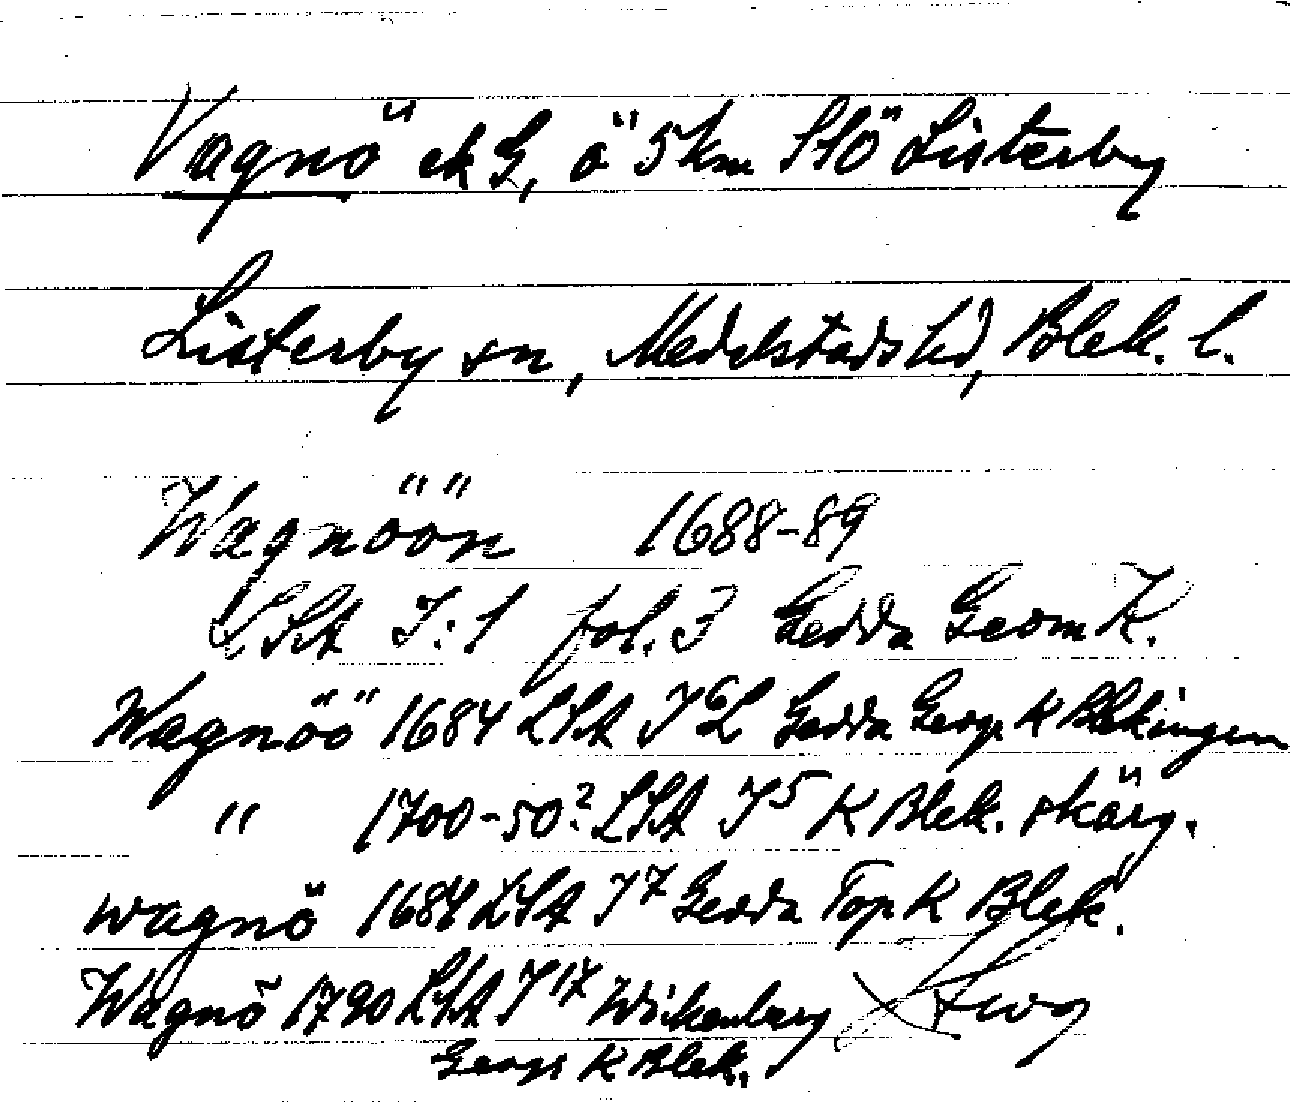 Vagnö ek G, ö 5 km SSÖ Listerby
Listerby sn, Medelstads hd, Blek. l.
Wagnöön 1688-89
LSA I:1 fol. 3 Gedda Geom K.
Wagnöö 1684 LSA Gedda Geogr K Blekingen
" 1700-50? LSA I5 K Blek. skärg.
wagnö 1684 LSA I7 Gedda Top K Blek.
Wagnö 1790 LSA I17 Wickenberg
Geogr K Blek.